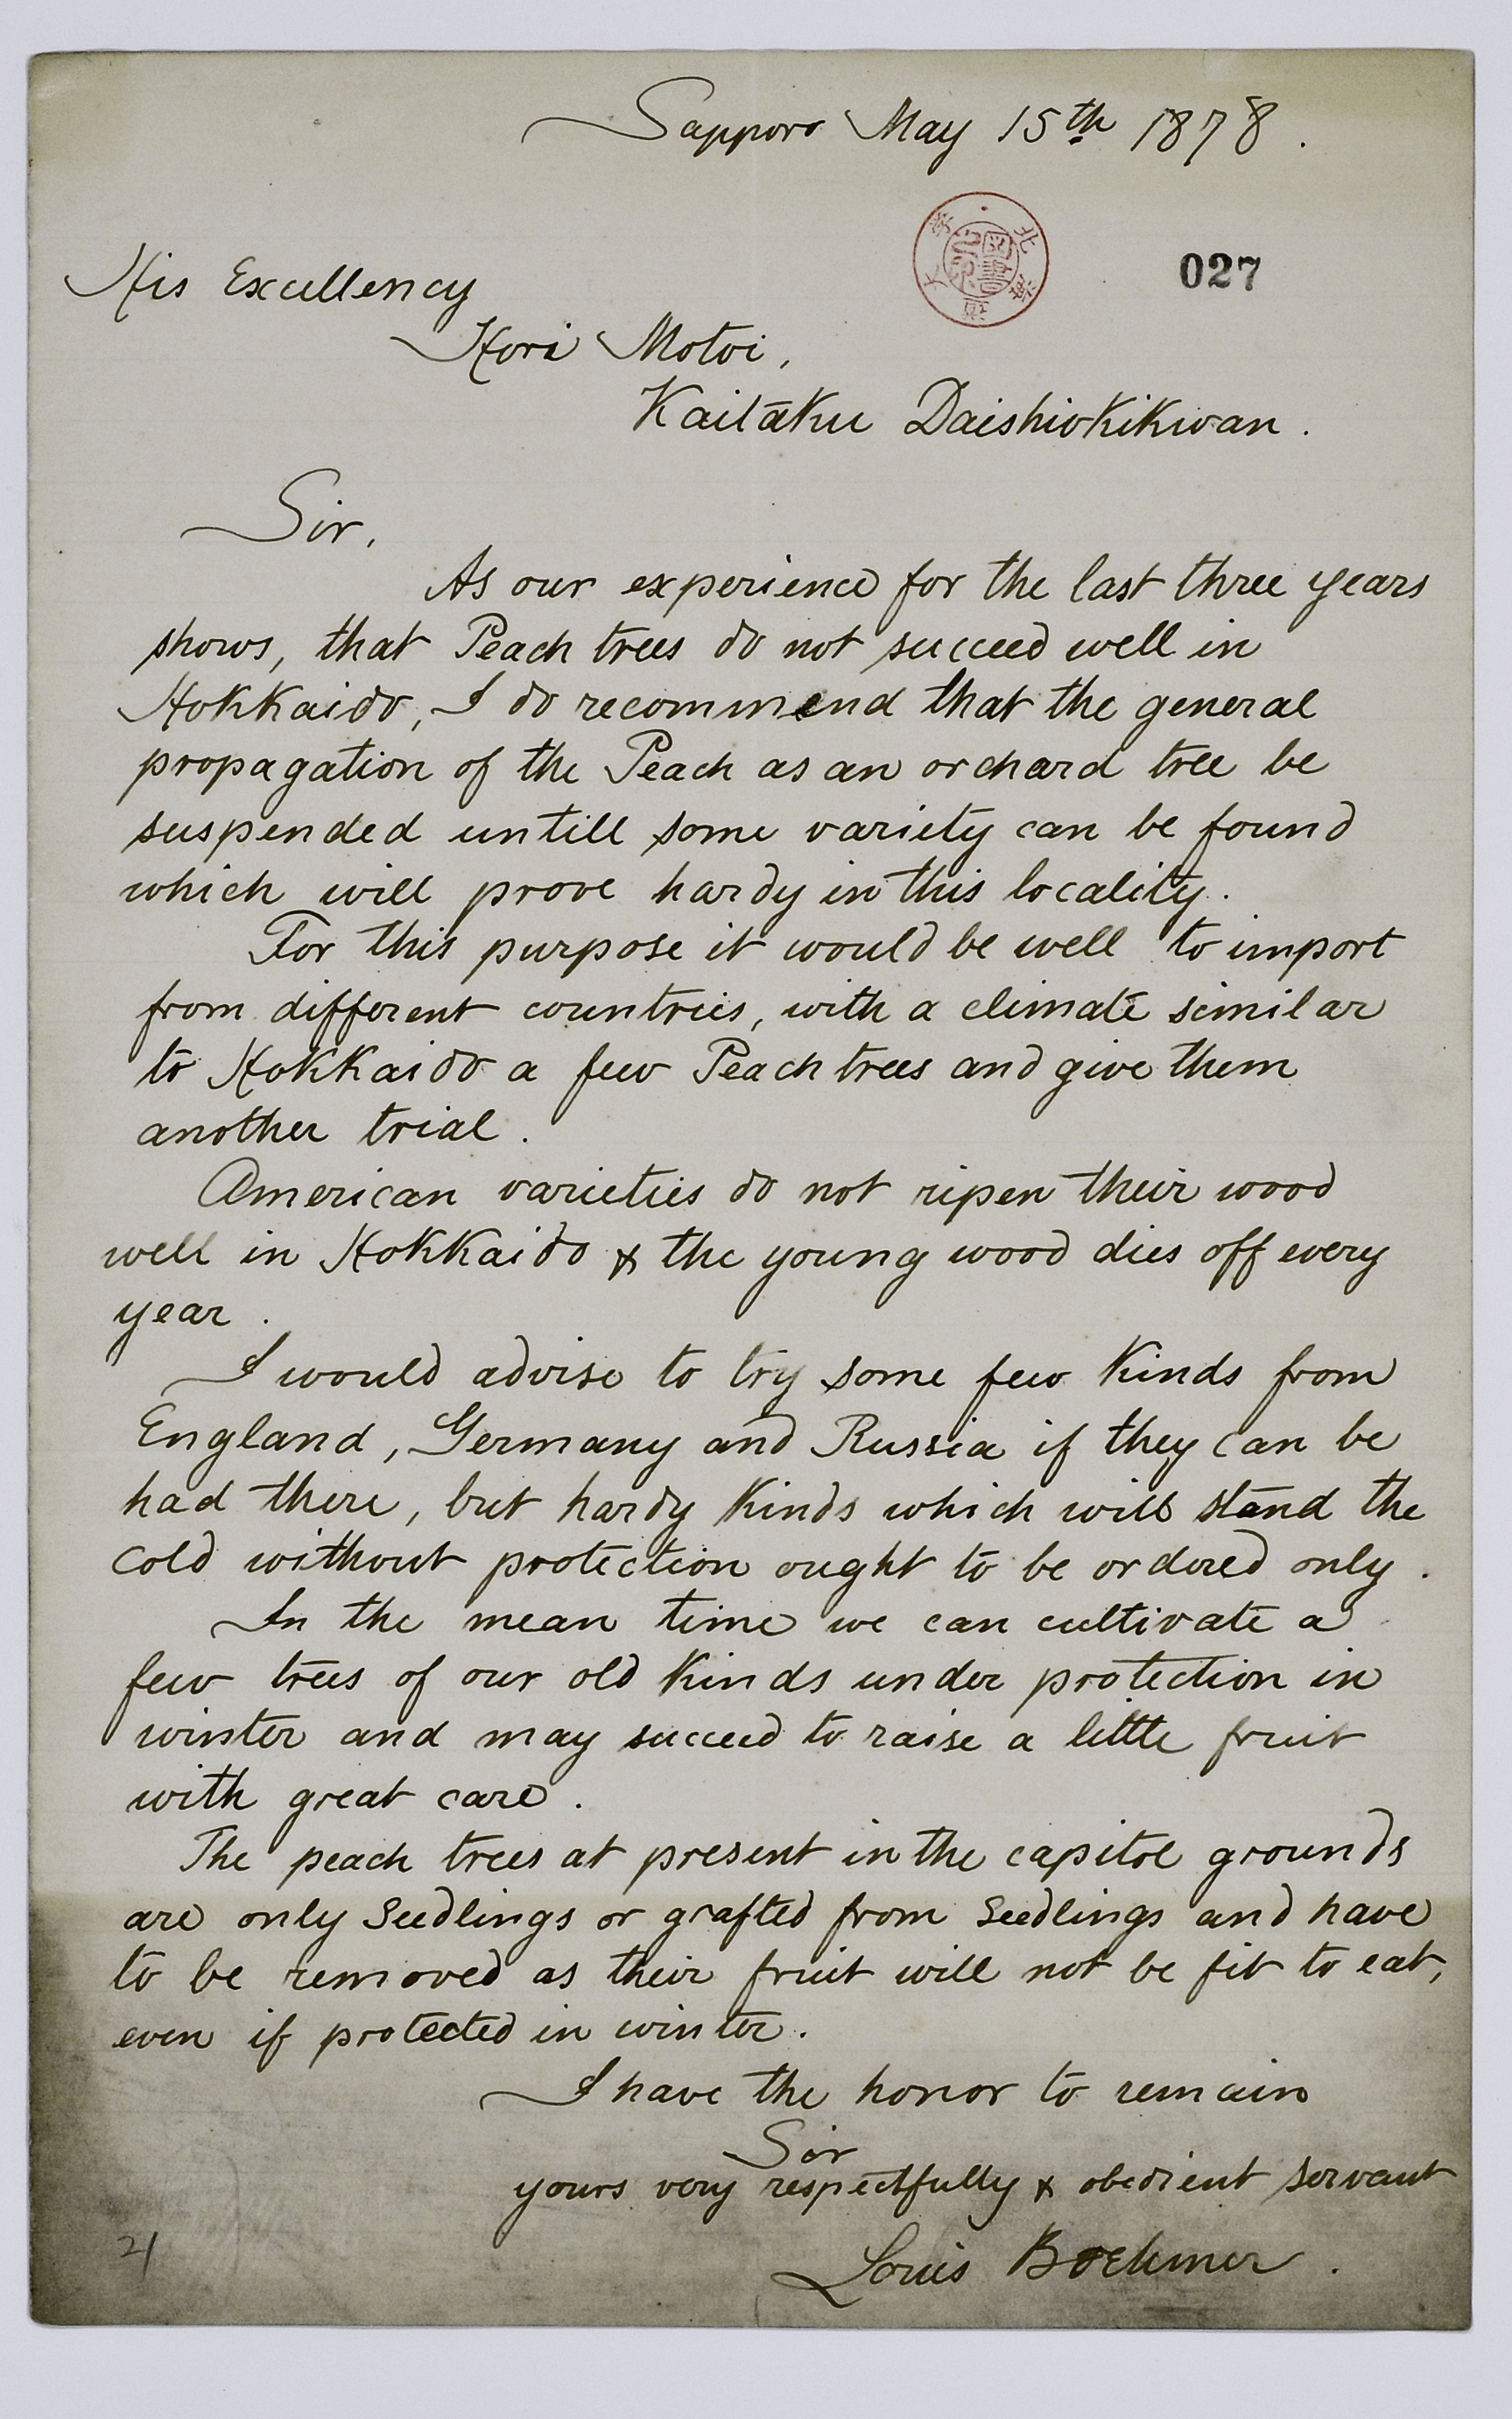 Sapporo May 15th 1878.
027
His Excellency
Hori Motoi,
Kaitaku Daishiokikwan.
Sir,
As our experience for the last three years
shows, that Peach trees do not succeed well in
Hokkaido, I do recommend that the general
propagation of the Peach as an orchard tree be
suspended untill some variety can be found
which will prove hardy in this locality.
For this purpose it would be well to import
from different countries, with a climate similar
to Hokkaido a few Peach trees and give them
another trial.
American varieties do not ripen their wood
well in Hokkaido & the young wood dies off every
year.
I would advise to try some few kinds from
England, Germany and Russia if they can be
had there, but hardy kinds which will stand the
cold without protection ought to be ordered only.
In the mean time we can cultivate a
few trees of our old kinds under protection in
winter and may succeed to raise a little fruit
with great care.
The peach trees at present in the capitol grounds
are only seedlings or grafted from seedlings and have
to be removed as their fruit will not be fit to eat,
even if protected in winter.
I have the honor to remain
Sir
yours very respectfully & obedient servant
Louis Boehmer.
21